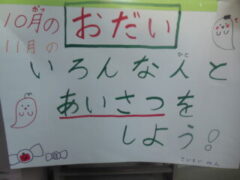 10月の
11月の
おだい
いろんな人と
あいさつを
しよう!